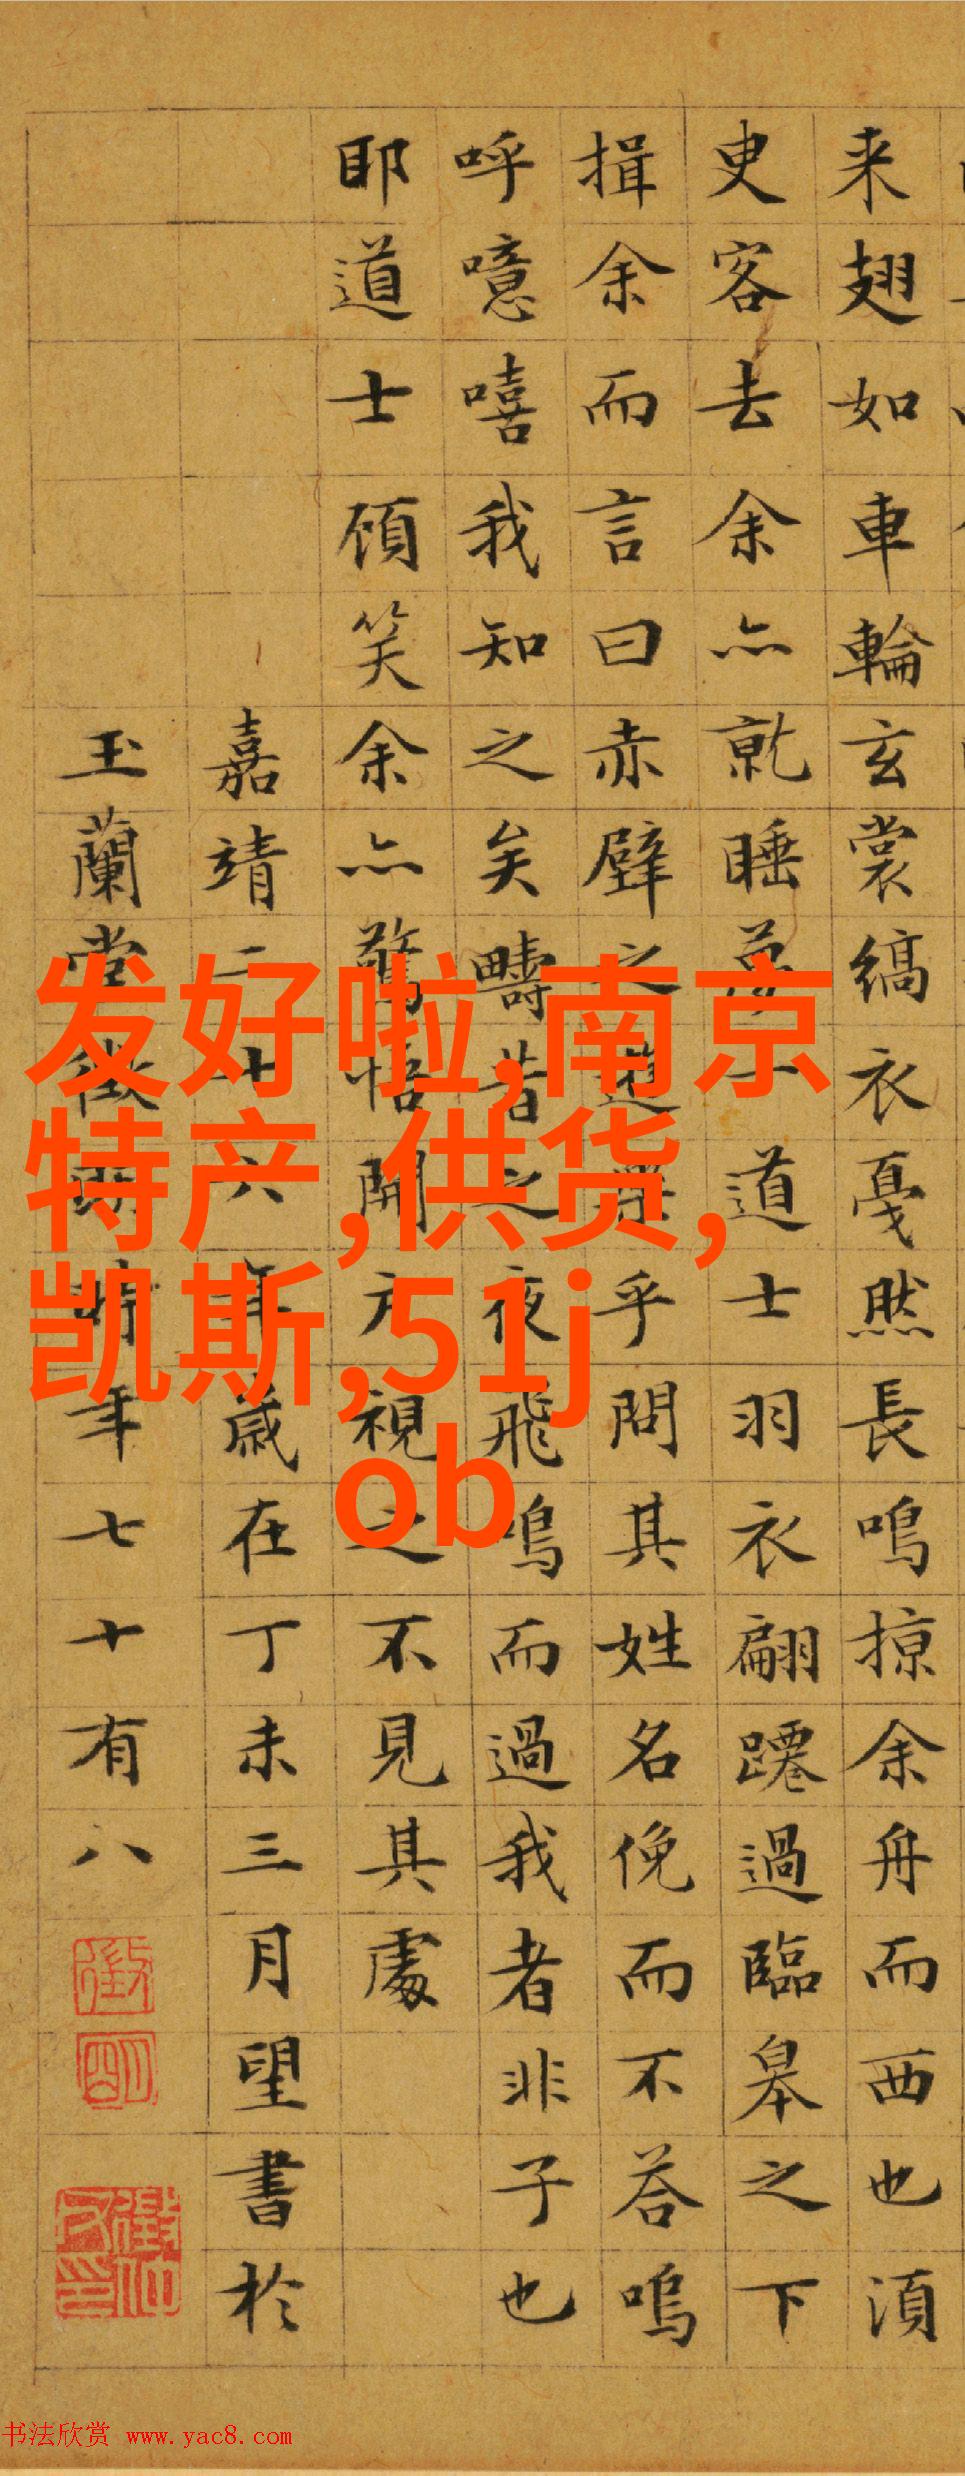 来翅如車輪玄裳縞衣戛然長鳴掠余舟而西也湏
吏客去余亦就睡夢一道士羽衣翩躚過臨皋之下
揖余而言曰赤壁之遊樂乎問其姓名俛而不荅嗚
呼噫嘻我知之矣疇昔之夜飛鳴而過我者非子也
耶道士顧笑余亦驚悟開户視之不見其處
嘉靖二十六年歲在丁未三月望書於
玉蘭堂徵明時年七十有八
徵
明
发好啦,南京
特产,供货,
凯斯,51j
ob
书法欣赏 www.yac8.com